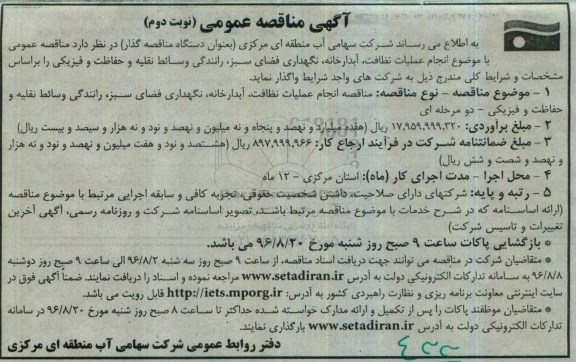 آگهی مناقصه عمومی (نوبت دوم)
به اطلاع می رساند شرکت سهامی آب منطقه ای مرکزی (بعنوان دستگاه مناقصه گذار) در نظر دارد مناقصه عمومی
با موضوع انجام عملیات نظافت، آبدارخانه، نگهداری فضای سبز، رانندگی وسائط نقلیه و حفاظت و فیزیکی را براساس
مشخصات و شرایط کلی مندرج ذیل به شرکت های واجد شرایط واگذار نماید.
۱ - موضوع مناقصه - نوع مناقصه: مناقصه انجام عملیات نظافت، آبدارخانه، نگهداری فضای سبز، رانندگی وسائط نقلیه و
حفاظت و فیزیکی - دو مرحله ای
۲ - مبلغ برآوردی: ۱۷,۹۵۹,۹۹۹,۳۲۰ ریال (هفده میلیارد و نهصد و پنجاه و نه میلیون و نهصد و نود و نه هزار و سیصد و بیست ریال)
۳ - مبلغ ضمانتنامه شرکت در فرآیند ارجاع کار: ۸۹۷,۹۹۹,۹۶۶ ریال (هشتصد و نود و هفت میلیون و نهصد و نود و نه هزار
و نهصد و شصت و شش ریال)
۴ - محل اجرا - مدت اجرای کار (ماه): استان مرکزی - ۱۲ ماه
۵ - رتبه و پایه: شرکتهای دارای صلاحیت، داشتن شخصیت حقوقی، تجربه کافی و سابقه اجرایی مرتبط با موضوع مناقصه
(ارائه اساسنامه که در شرح خدمات با موضوع مناقصه مرتبط باشد، تصویر اساسنامه شرکت و روزنامه رسمی، آگهی آخرین
تغییرات و تاسیس شرکت)
* بازگشایی پاکات ساعت ۹ صبح روز شنبه مورخ ۹۶/۸/۲۰ می باشد.
* متقاضیان شرکت در مناقصه می توانند جهت دریافت اسناد مناقصه، از ساعت ۹ صبح روز سه شنبه ۹۶/۸/۲ الی ساعت ۹ صبح روز دوشنبه
۹۶/۸/۸ به سامانه تدارکات الکترونیکی دولت به آدرس www.setadiran.ir مراجعه نموده و اسناد را دریافت نمایند. ضمناً آگهی فوق در
سایت اینترنتی معاونت برنامه ریزی و نظارت راهبردی کشور به آدرس: http://iets.mporg.ir قابل رویت می باشد.
* متقاضیان موظفند پاکات را پس از تکمیل و ارائه مدارک خواسته شده حداکثر تا ساعت ۸ صبح روز شنبه مورخ ۹۶/۸/۲۰ در سامانه
تدارکات الکترونیکی دولت به آدرس www.setadiran.ir بارگذاری نمایند.
دفتر روابط عمومی شرکت سهامی آب منطقه ای مرکزی